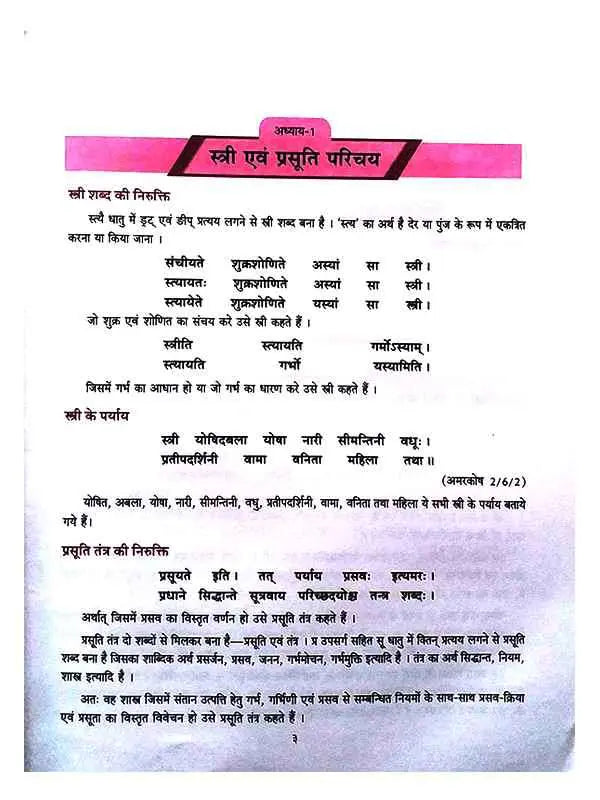 अध्याय-1
स्त्री एवं प्रसूति परिचय
स्त्री शब्द की निरुक्ति
स्त्यै धातु में ड्रट् एवं ङीप् प्रत्यय लगने से स्त्री शब्द बना है । ‘स्त्य’ का अर्थ है देर या पुंज के रूप में एकत्रित
करना या किया जाना ।
संचीयते शुक्रशोणिते अस्यां सा स्त्री ।
स्त्यायतः शुक्रशोणिते अस्यां सा स्त्री ।
स्त्यायेते शुक्रशोणिते यस्यां सा स्त्री ।
जो शुक्र एवं शोणित का संचय करे उसे स्त्री कहते हैं ।
स्त्रीति स्त्यायति गर्मोऽस्याम् ।
स्त्यायति गर्भो यस्यामिति ।
जिसमें गर्भ का आधान हो या जो गर्भ का धारण करे उसे स्त्री कहते हैं ।
स्त्री के पर्याय
स्त्री योषिदबला योषा नारी सीमन्तिनी वधूः ।
प्रतीपदर्शिनी वामा वनिता महिला तथा ॥
(अमरकोष 2/6/2)
योषित, अबला, योषा, नारी, सीमन्तिनी, वधु, प्रतीपदर्शिनी, वामा, वनिता तथा महिला ये सभी स्त्री के पर्याय बताये
गये हैं।
प्रसूति तंत्र की निरुक्ति
प्रसूयते इति । तत् पर्याय प्रसवः इत्यमरः ।
प्रधाने सिद्धान्ते सूत्रवाय परिच्छदयोश्च तन्त्र शब्दः ।
अर्थात् जिसमें प्रसव का विस्तृत वर्णन हो उसे प्रसूति तंत्र कहते हैं ।
प्रसूति तंत्र दो शब्दों से मिलकर बना है—प्रसूति एवं तंत्र । प्र उपसर्ग सहित सू धातु में क्तिन् प्रत्यय लगने से प्रसूति
शब्द बना है जिसका शाब्दिक अर्थ प्रसर्जन, प्रसव, जनन, गर्भमोचन, गर्भमुक्ति इत्यादि है । तंत्र का अर्थ सिद्धान्त, नियम,
शास्त्र इत्यादि है ।
अतः वह शास्त्र जिसमें संतान उत्पत्ति हेतु गर्भ, गर्भिणी एवं प्रसव से सम्बन्धित नियमों के साथ-साथ प्रसव-क्रिया
एवं प्रसूता का विस्तृत विवेचन हो उसे प्रसूति तंत्र कहते हैं ।
३